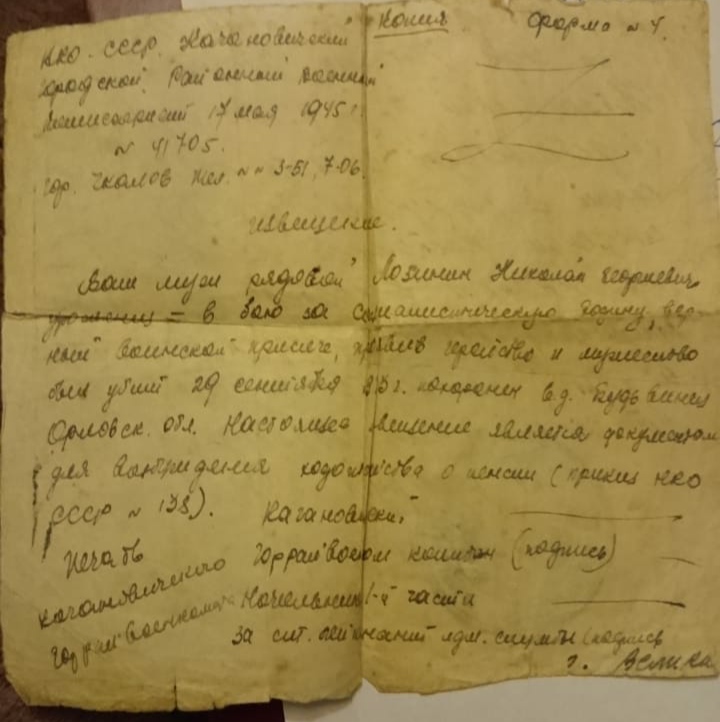 Копия Форма № 4.
НКО. СССР. Кагановический
городской Районный военный
комиссариат 17 мая 1945 г.
№ 41705.
гор. Чкалов тел. №№ 3-51, 7-06.
извещение.
Ваш муж рядовой Лозинин Николай Георгиевич
в бою за социалистическую родину, вер-
ный воинской присяге, проявив геройство и мужество
был убит 29 сентября 43 г. похоронен в д.
Орловск. обл. Настоящее извещение является документом
для возбуждения ходатайства о пенсии (приказ НКО
СССР № 138). Кагановический
Печать Горрайвоенком капитан (подпись)
Кагановического
Горрайвоенкомата Начальник 1-й части
За ст. лейтенант адм. службы (подпись
г.